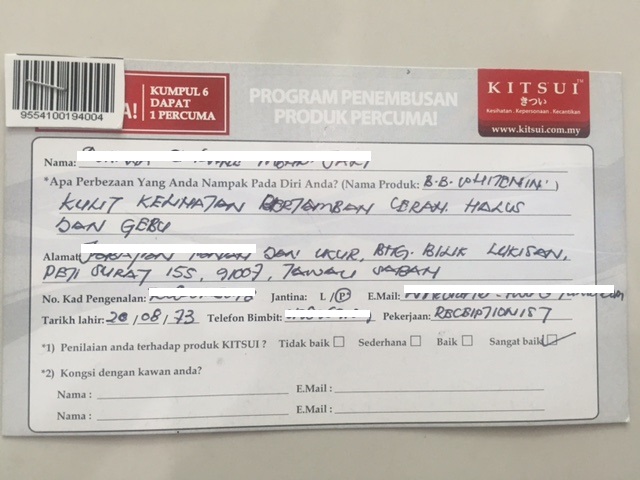 KUMPUL 6
DAPAT
1 PERCUMA
A!
9554100194004
PROGRAM PENEMBUSAN
PRODUK PERCUMA!
KITSUI™
きつい
Kesihatan . Kepersonaan . Kecantikan
www.kitsui.com.my
Nama:
*Apa Perbezaan Yang Anda Nampak Pada Diri Anda? (Nama Produk: B.B. WHITENIN')
KULIT KELIHATAN BERTAMBAH CERAH. HALUS
DAN GEBU
Alamat: DAN UKUR, BHG. BILIK LUKISAN,
PETI SURAT 155, 91007, TAWAU SABAH
No. Kad Pengenalan: Jantina: L / P E.Mail:
Tarikh lahir: 20/08/73 Telefon Bimbit: Pekerjaan: RECEIPTIONIST
*1) Penilaian anda terhadap produk KITSUI ? Tidak baik Sederhana Baik Sangat baik
*2) Kongsi dengan kawan anda?
Nama : E.Mail :
Nama : E.Mail :